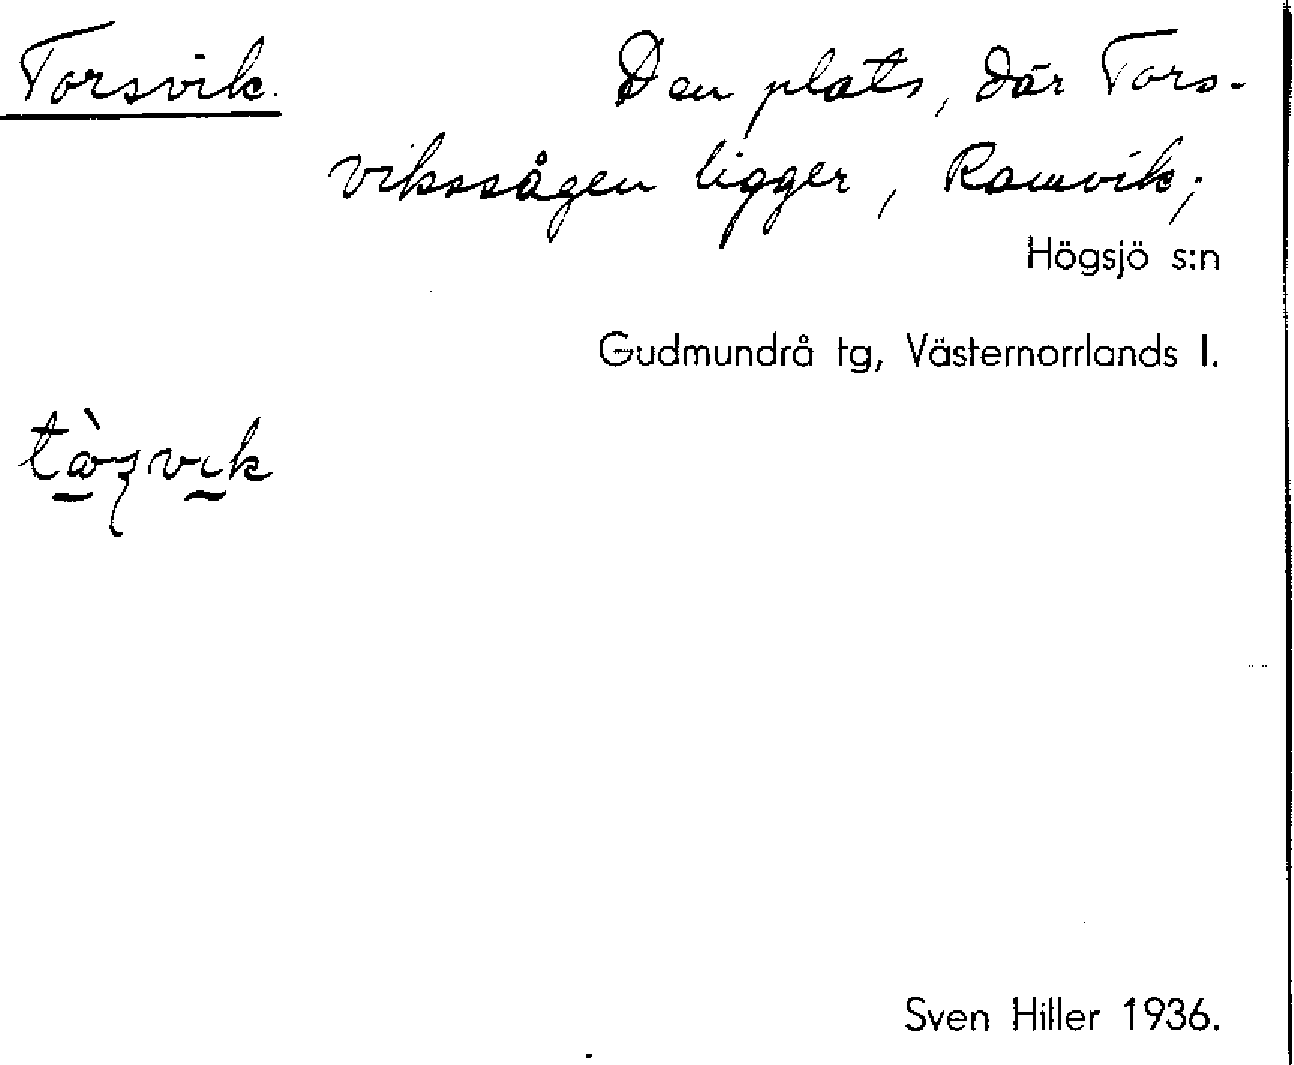 Torsvik. Den plats, där Tors-
vikssågen ligger, Ramvik;
Högsjö s:n
Gudmundrå tg, Västernorrlands l.
Sven Hiller 1936.